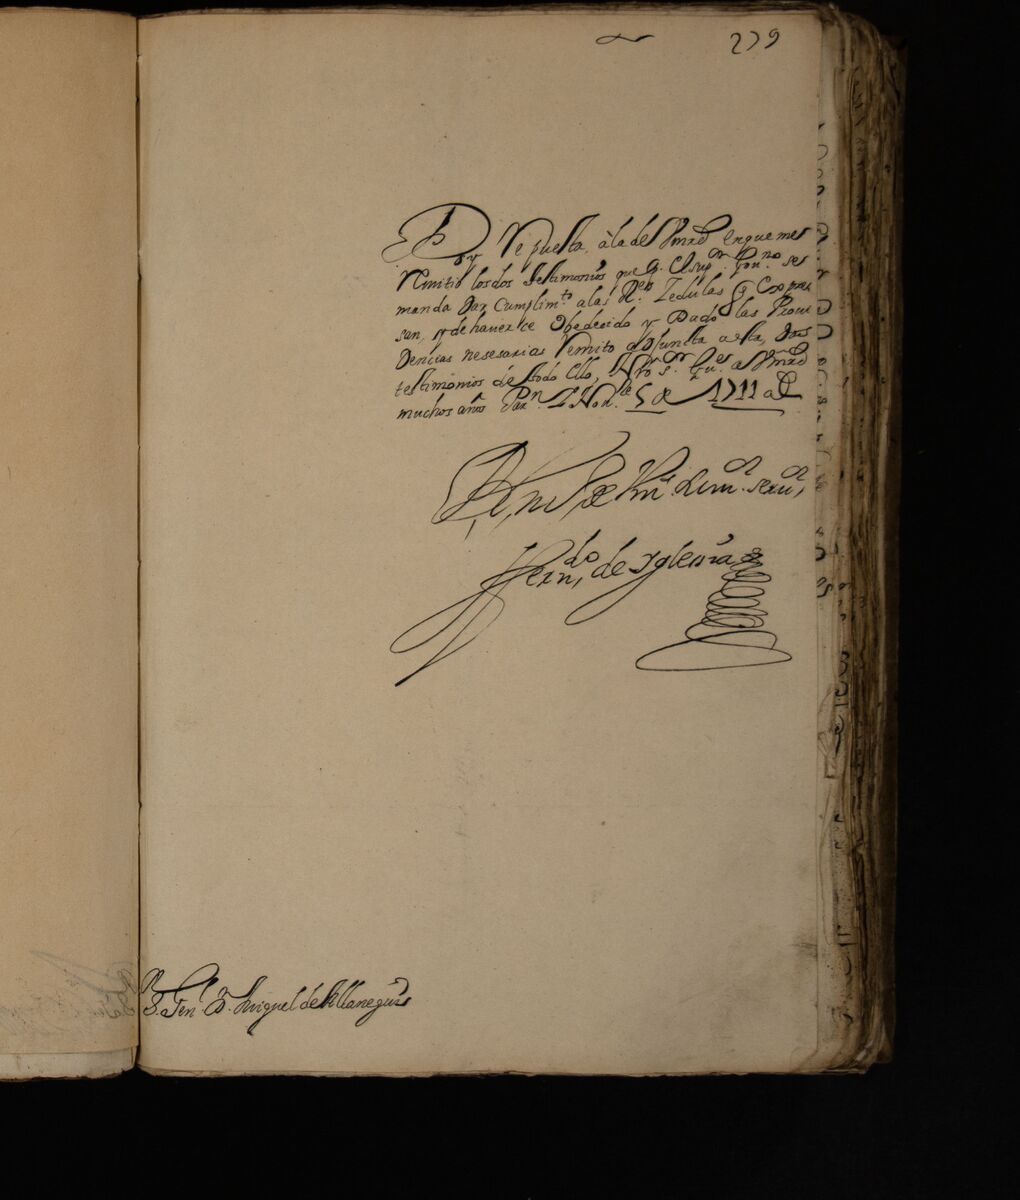 279
Doy Repuesta, à la de Vmrd en que me
Remitio los dos testimonios que el Supr. Govno. se
manda dar Cumplimto. a las Rs. Zedulas q Expre
san, y de haverce Obedesido y Dado las Provi
dencias nesesarias Remito adjuncta a esta, Dos
testimonios de todo Ello, Nro. Sr. Gue. a Vmrd
muchos años Parn. Y Nove. 5 de 1711 as
de Vm.
Ferndo. de Yglesias
Sr. Genl. Dn. Miguel de Elisaneguis